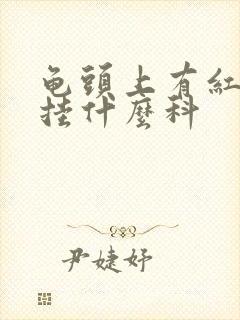 龟頭上有紅
挂什麼科
尹婕妤